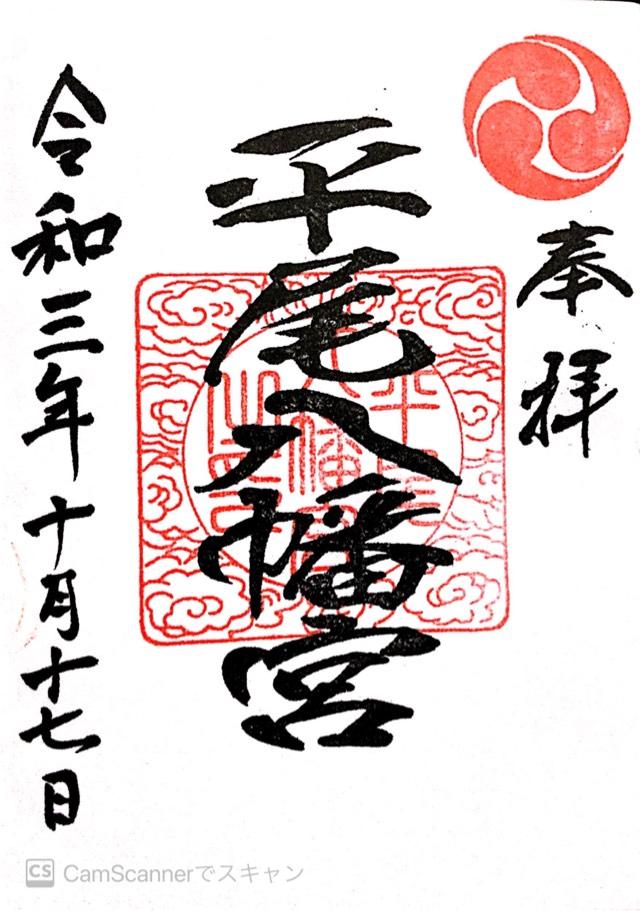 奉拝
平尾八幡宮
令和三年十月十七日
CS CamScannerでスキャン